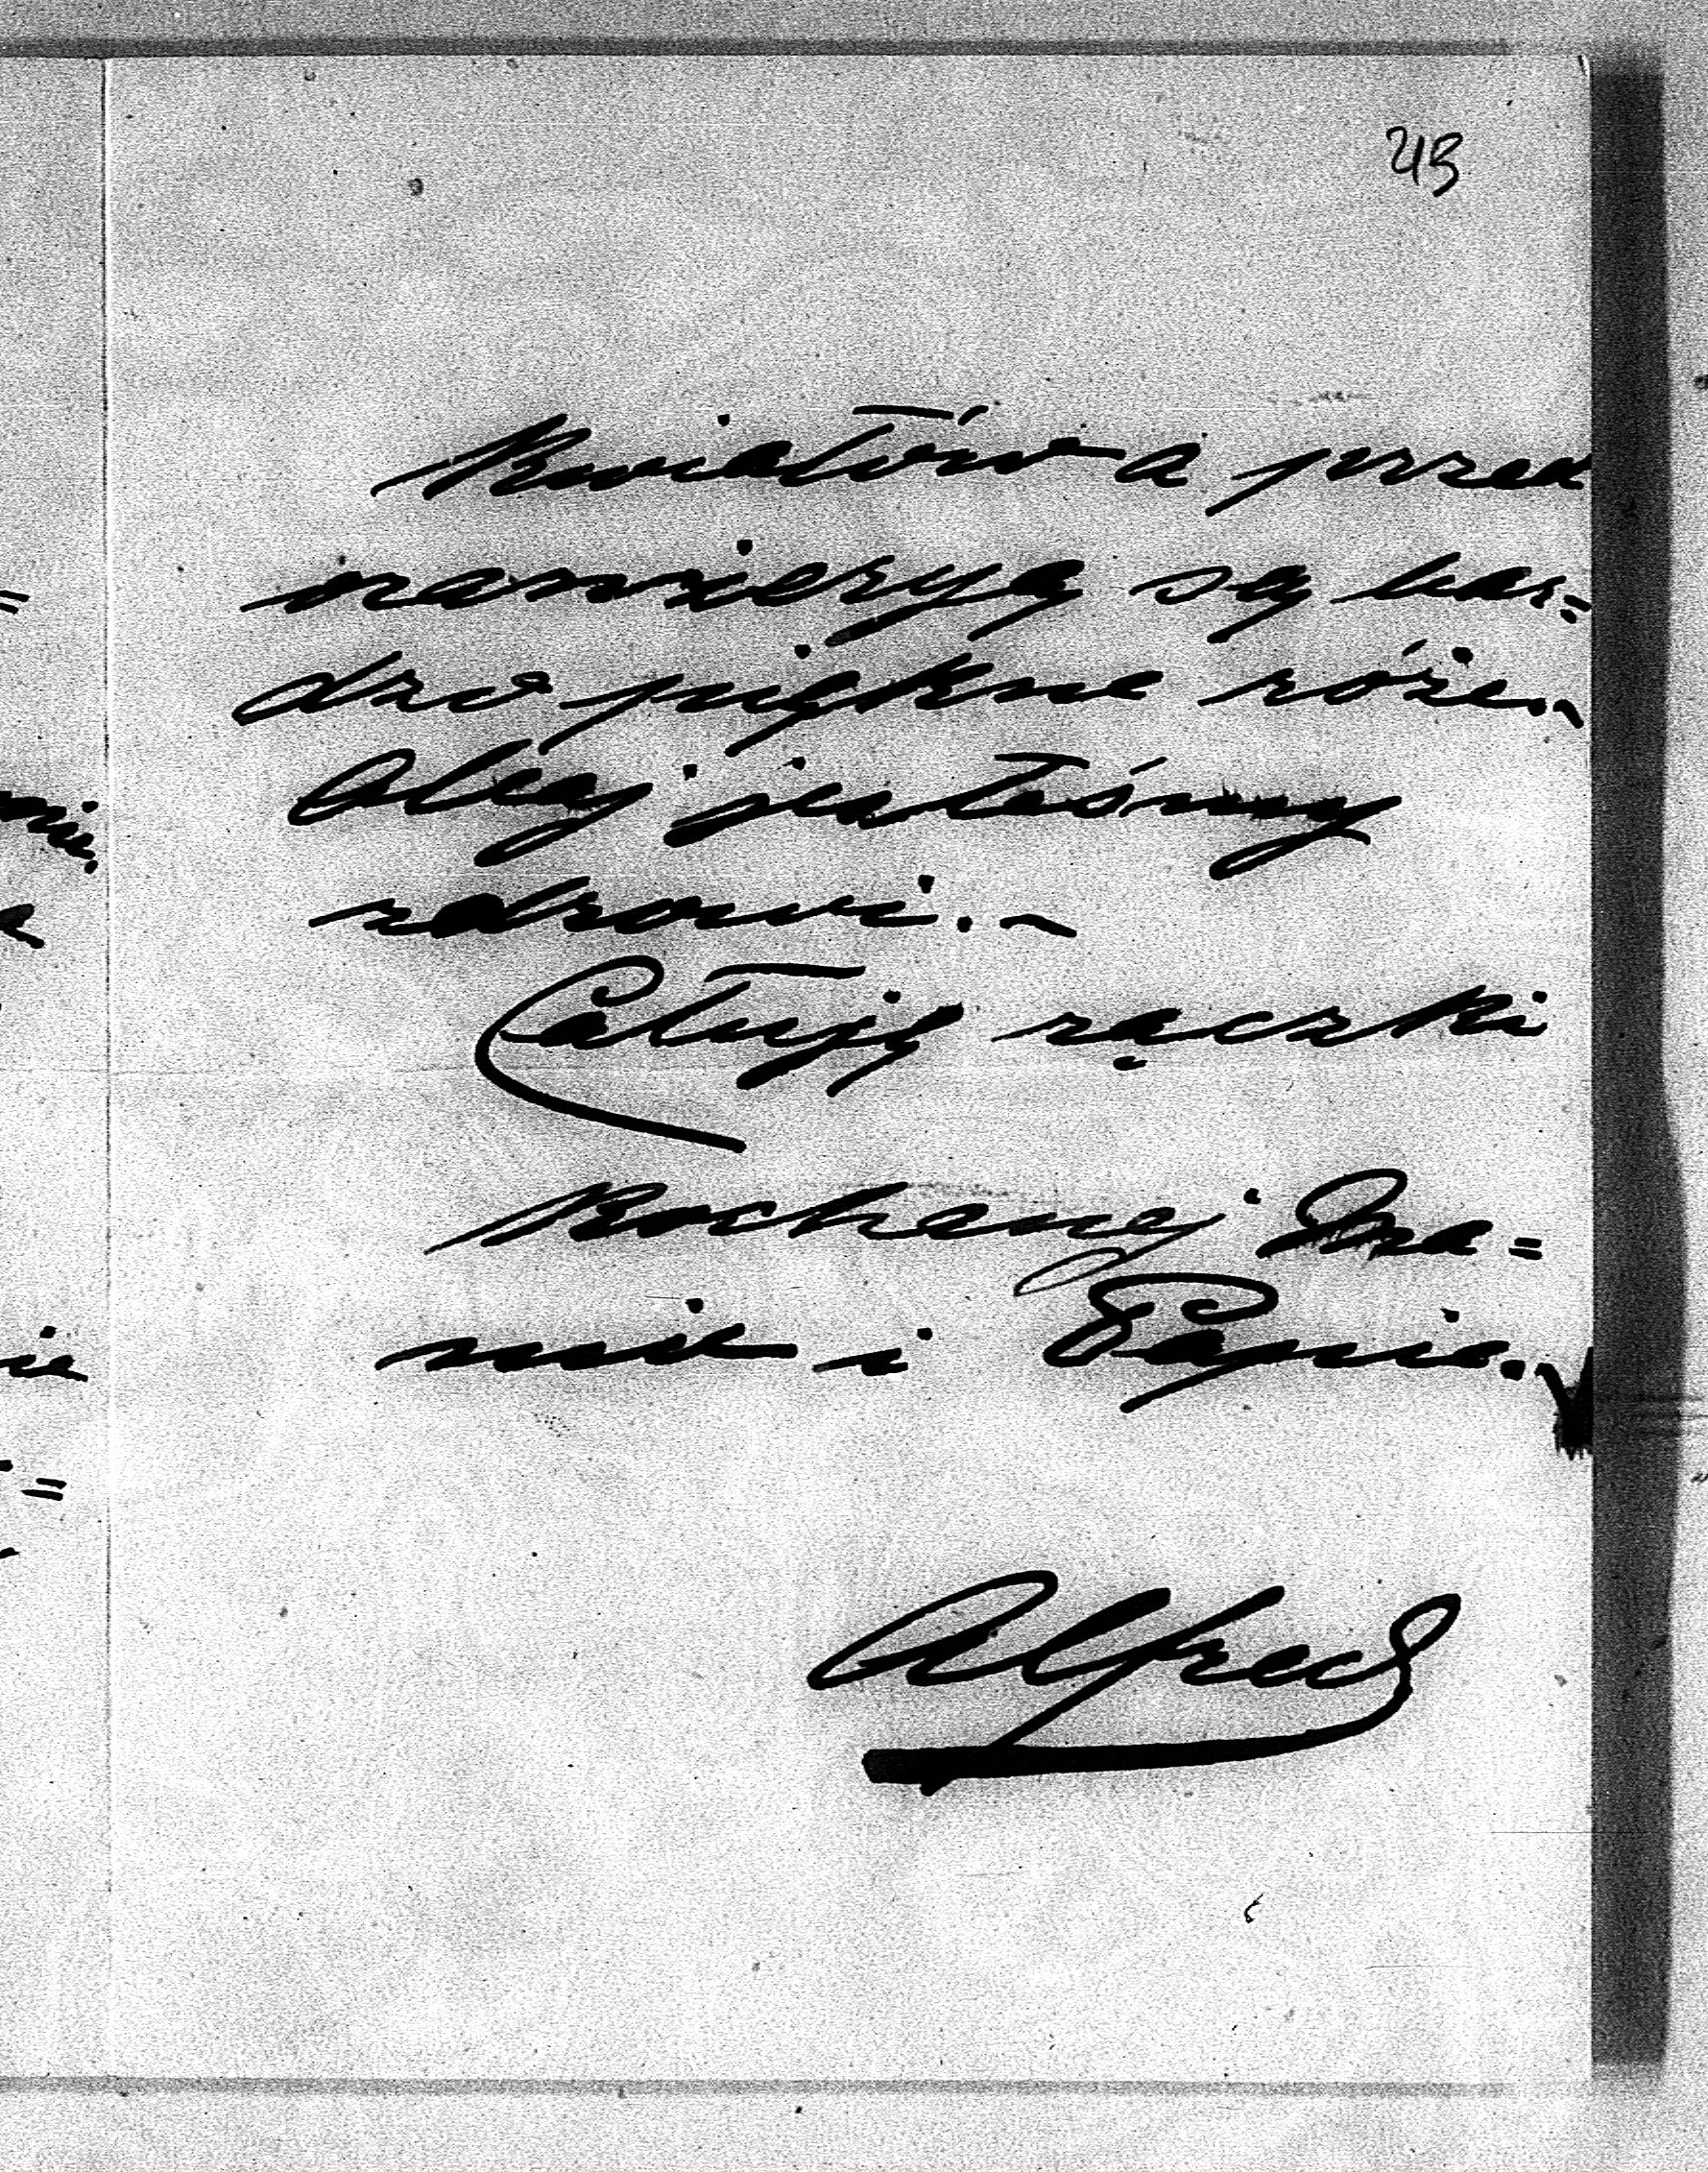 43
Kwiatów a przed
oranżeryą są bar=
dzo piękne róże.~
Obaj jesteśmy
zdrowi.~
Całuję rączki
Kochanej Ma=
mie i Papie.~
Alfred